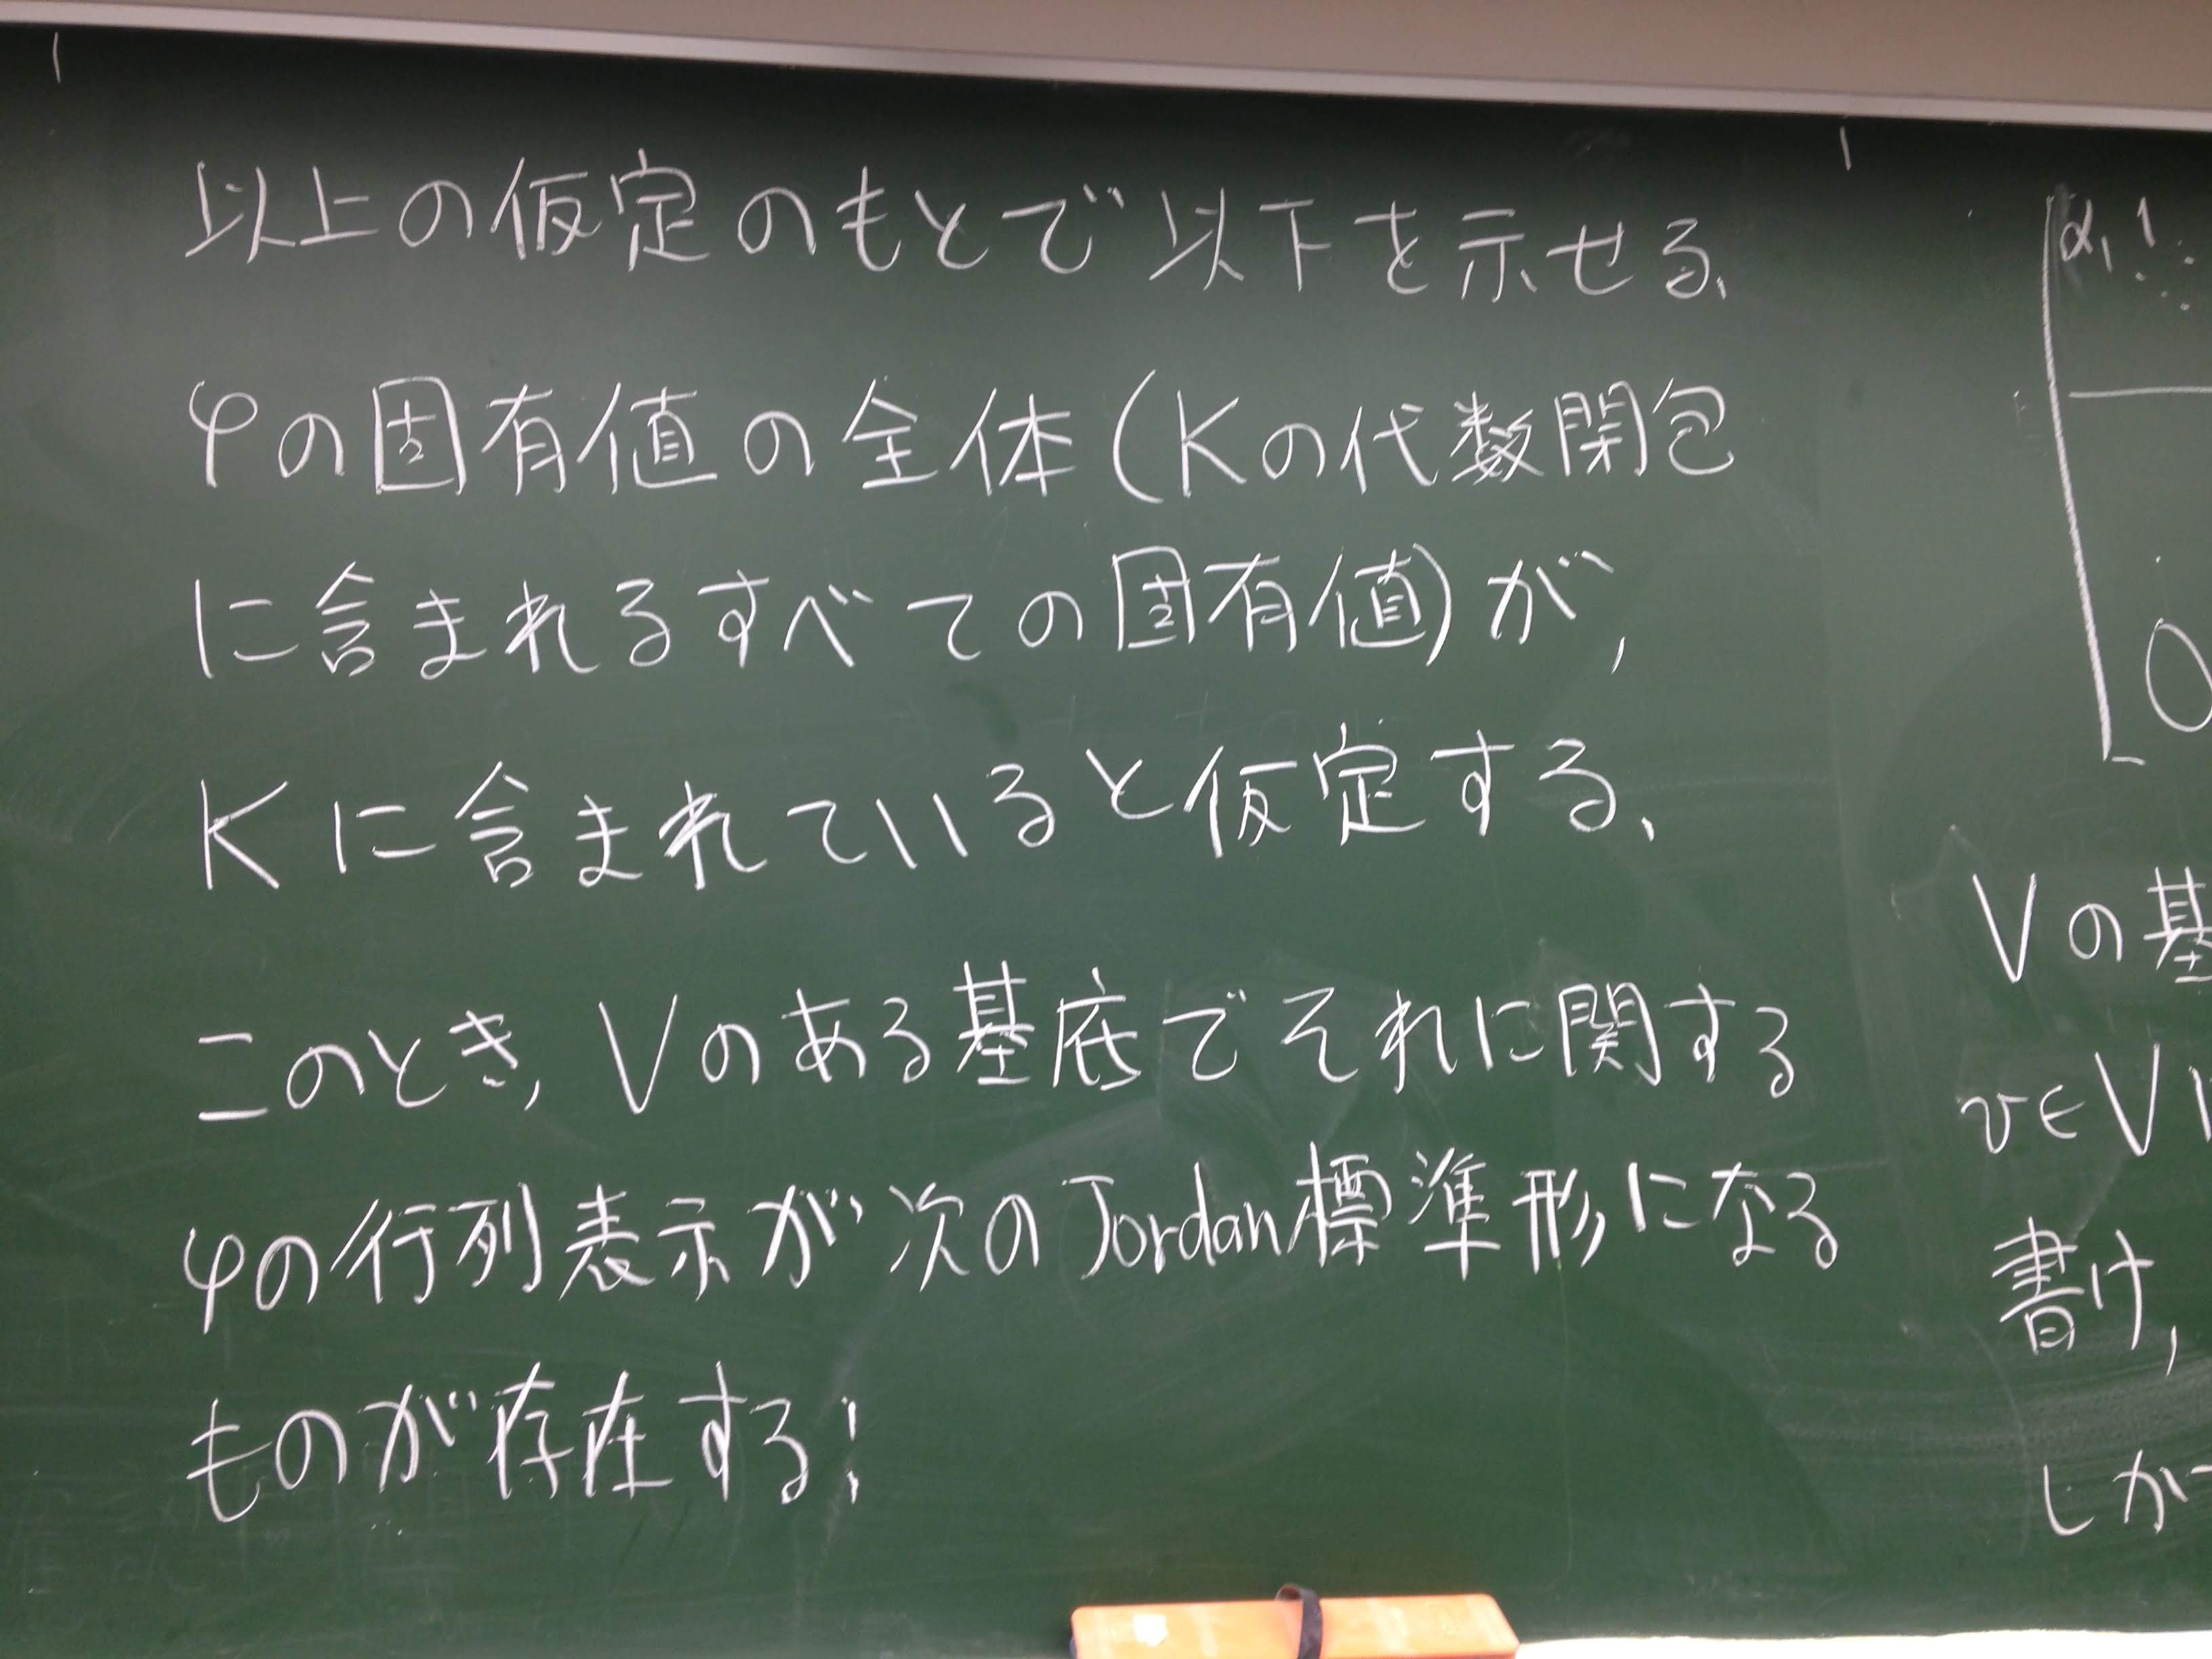 以上の仮定のもとで以下を示せる、
φの固有値の全体(Kの代数閉包
に含まれるすべての固有値)が,
Kに含まれていると仮定する、
このとき, Vのある基底でそれに関する
φの行列表示が次のJordan標準形になる
ものが存在する:
α₁ 1
0
Vの基
v∈V
書け,
しか